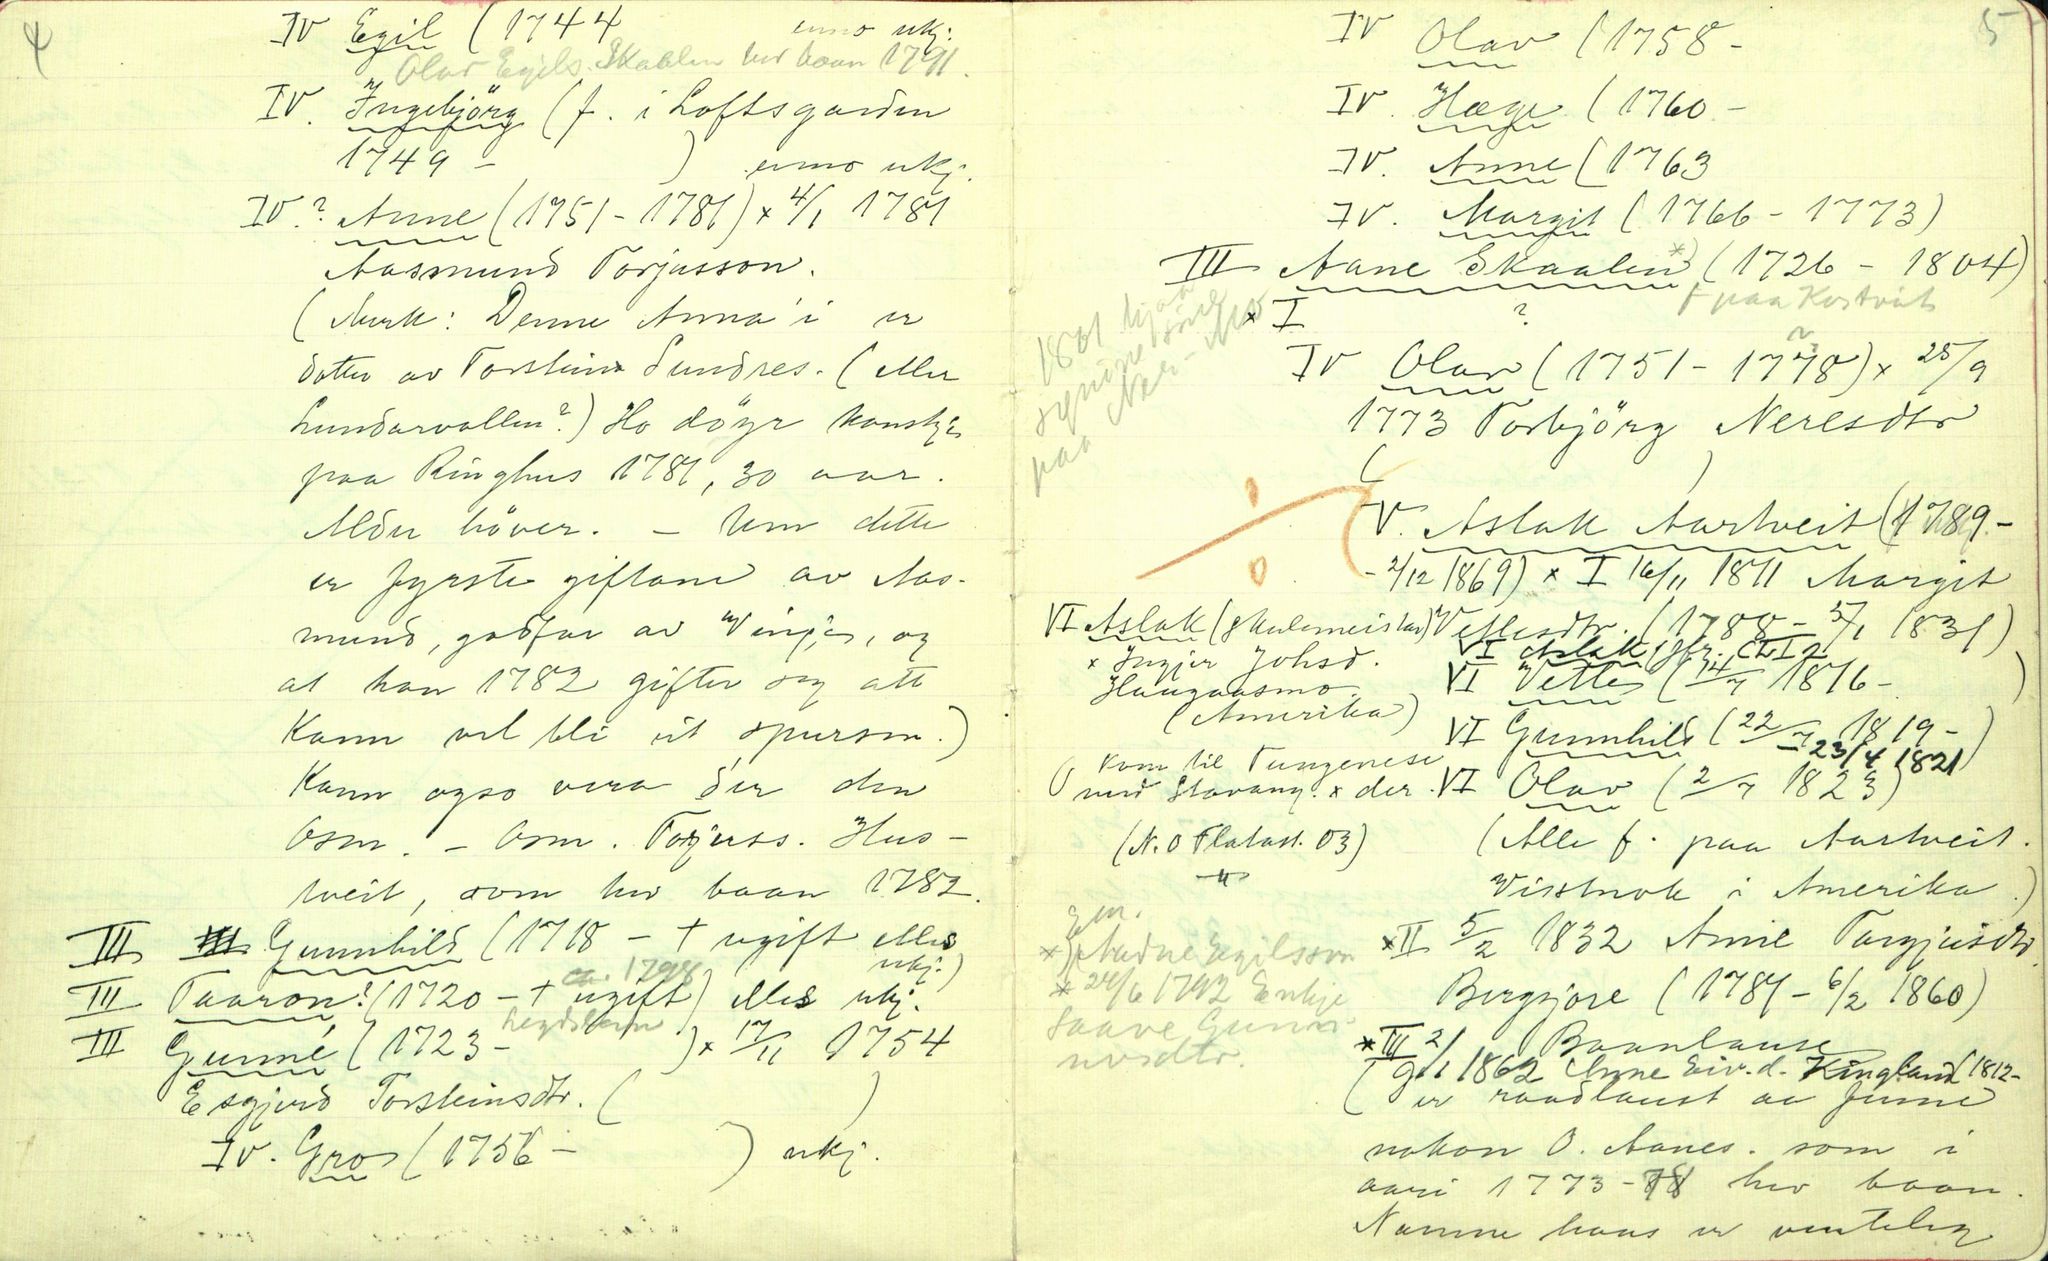 4
IV Egil (1744 enno ukj.
Olav Egils. Skaalen hev baan 1791.
IV. Ingebjörg (f. i Loftsgarden
1749 - ) enno ukj.
IV? Anne (1751 - 1781) × 4/1 1781
Aasmund Torjusson.
(Merk: Denne Anna'i er
dotter av Torstein Sundres. (eller
Lundarvollen?) Ho döyr kanskje
paa Ringhus 1781, 30 aar.
Aldr höver. - Um dette
er fyrste giftame av Aas-
mund, godfar av Vinje, og
at han 1782 gifter seg att
Kann vel bli eit spursm.)
Kann ogso vera der den
Osm. - Osm. Torjuss. Hus-
tveit, som hev baan 1782.
III Gunnhild (1718 - † ugift elles
ukj.)
III Taaron? (1720 - † ugift) elles ukj.
ca. 1798
legdslem
III Gunne (1723 - ) × 17/11 1754
Esgjerd Torsteinsdtr. ( )
IV. Gro (1756 - ) ukj.
5
IV Olav (1758 -
IV. Hæge (1760 -
IV. Anne (1763
IV. Margit (1766 - 1773)
III Aane Skaalen *) (1726 - 1804)
† paa Kostveit
× I ?
1801 hjaa
paa
IV Olav (1751 - 1778) × 25/9
?
1773 Torbjörg Neresdtr
( )
V. Aslak Aartveit (1789 -
- 2/12 1869) × I 16/11 1811 Margit
Vetlesdtr. (1788 - 5/1 1831)
VI Aslak (skulemeister)
× Ingjer Johsd.
Haugaasmo.
(Amerika)
VI Aslak
VI Vetle (14/7 1816 - )
VI Gunnhild (22/7 1819 -
- 23/4 1821)
VI Olav (2/7 1823)
O kom til Tungenese
ved Stavang. × der.
(N. O Flatast. 03)
(Alle f. paa Aartveit.
Visstnok i Amerika.)
× II 5/2 1832 Anne Targjusdtr.
Bergsjore (1787 - 6/2 1860)
× Aadne Egilsson
* 24/6 1792 Enkje
Saave Gunn-
× III 2/1 Baanlause
1862 Anne Eiv.d. Kingland (1812-
(er raadlaust aa finne
nokon O. Aanes. som i
aari 1773 - 78 hev baan.
Namne hans er venteleg